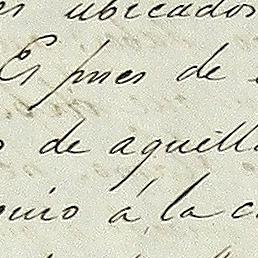 ubicados
Es pues de
de aquell
á la c